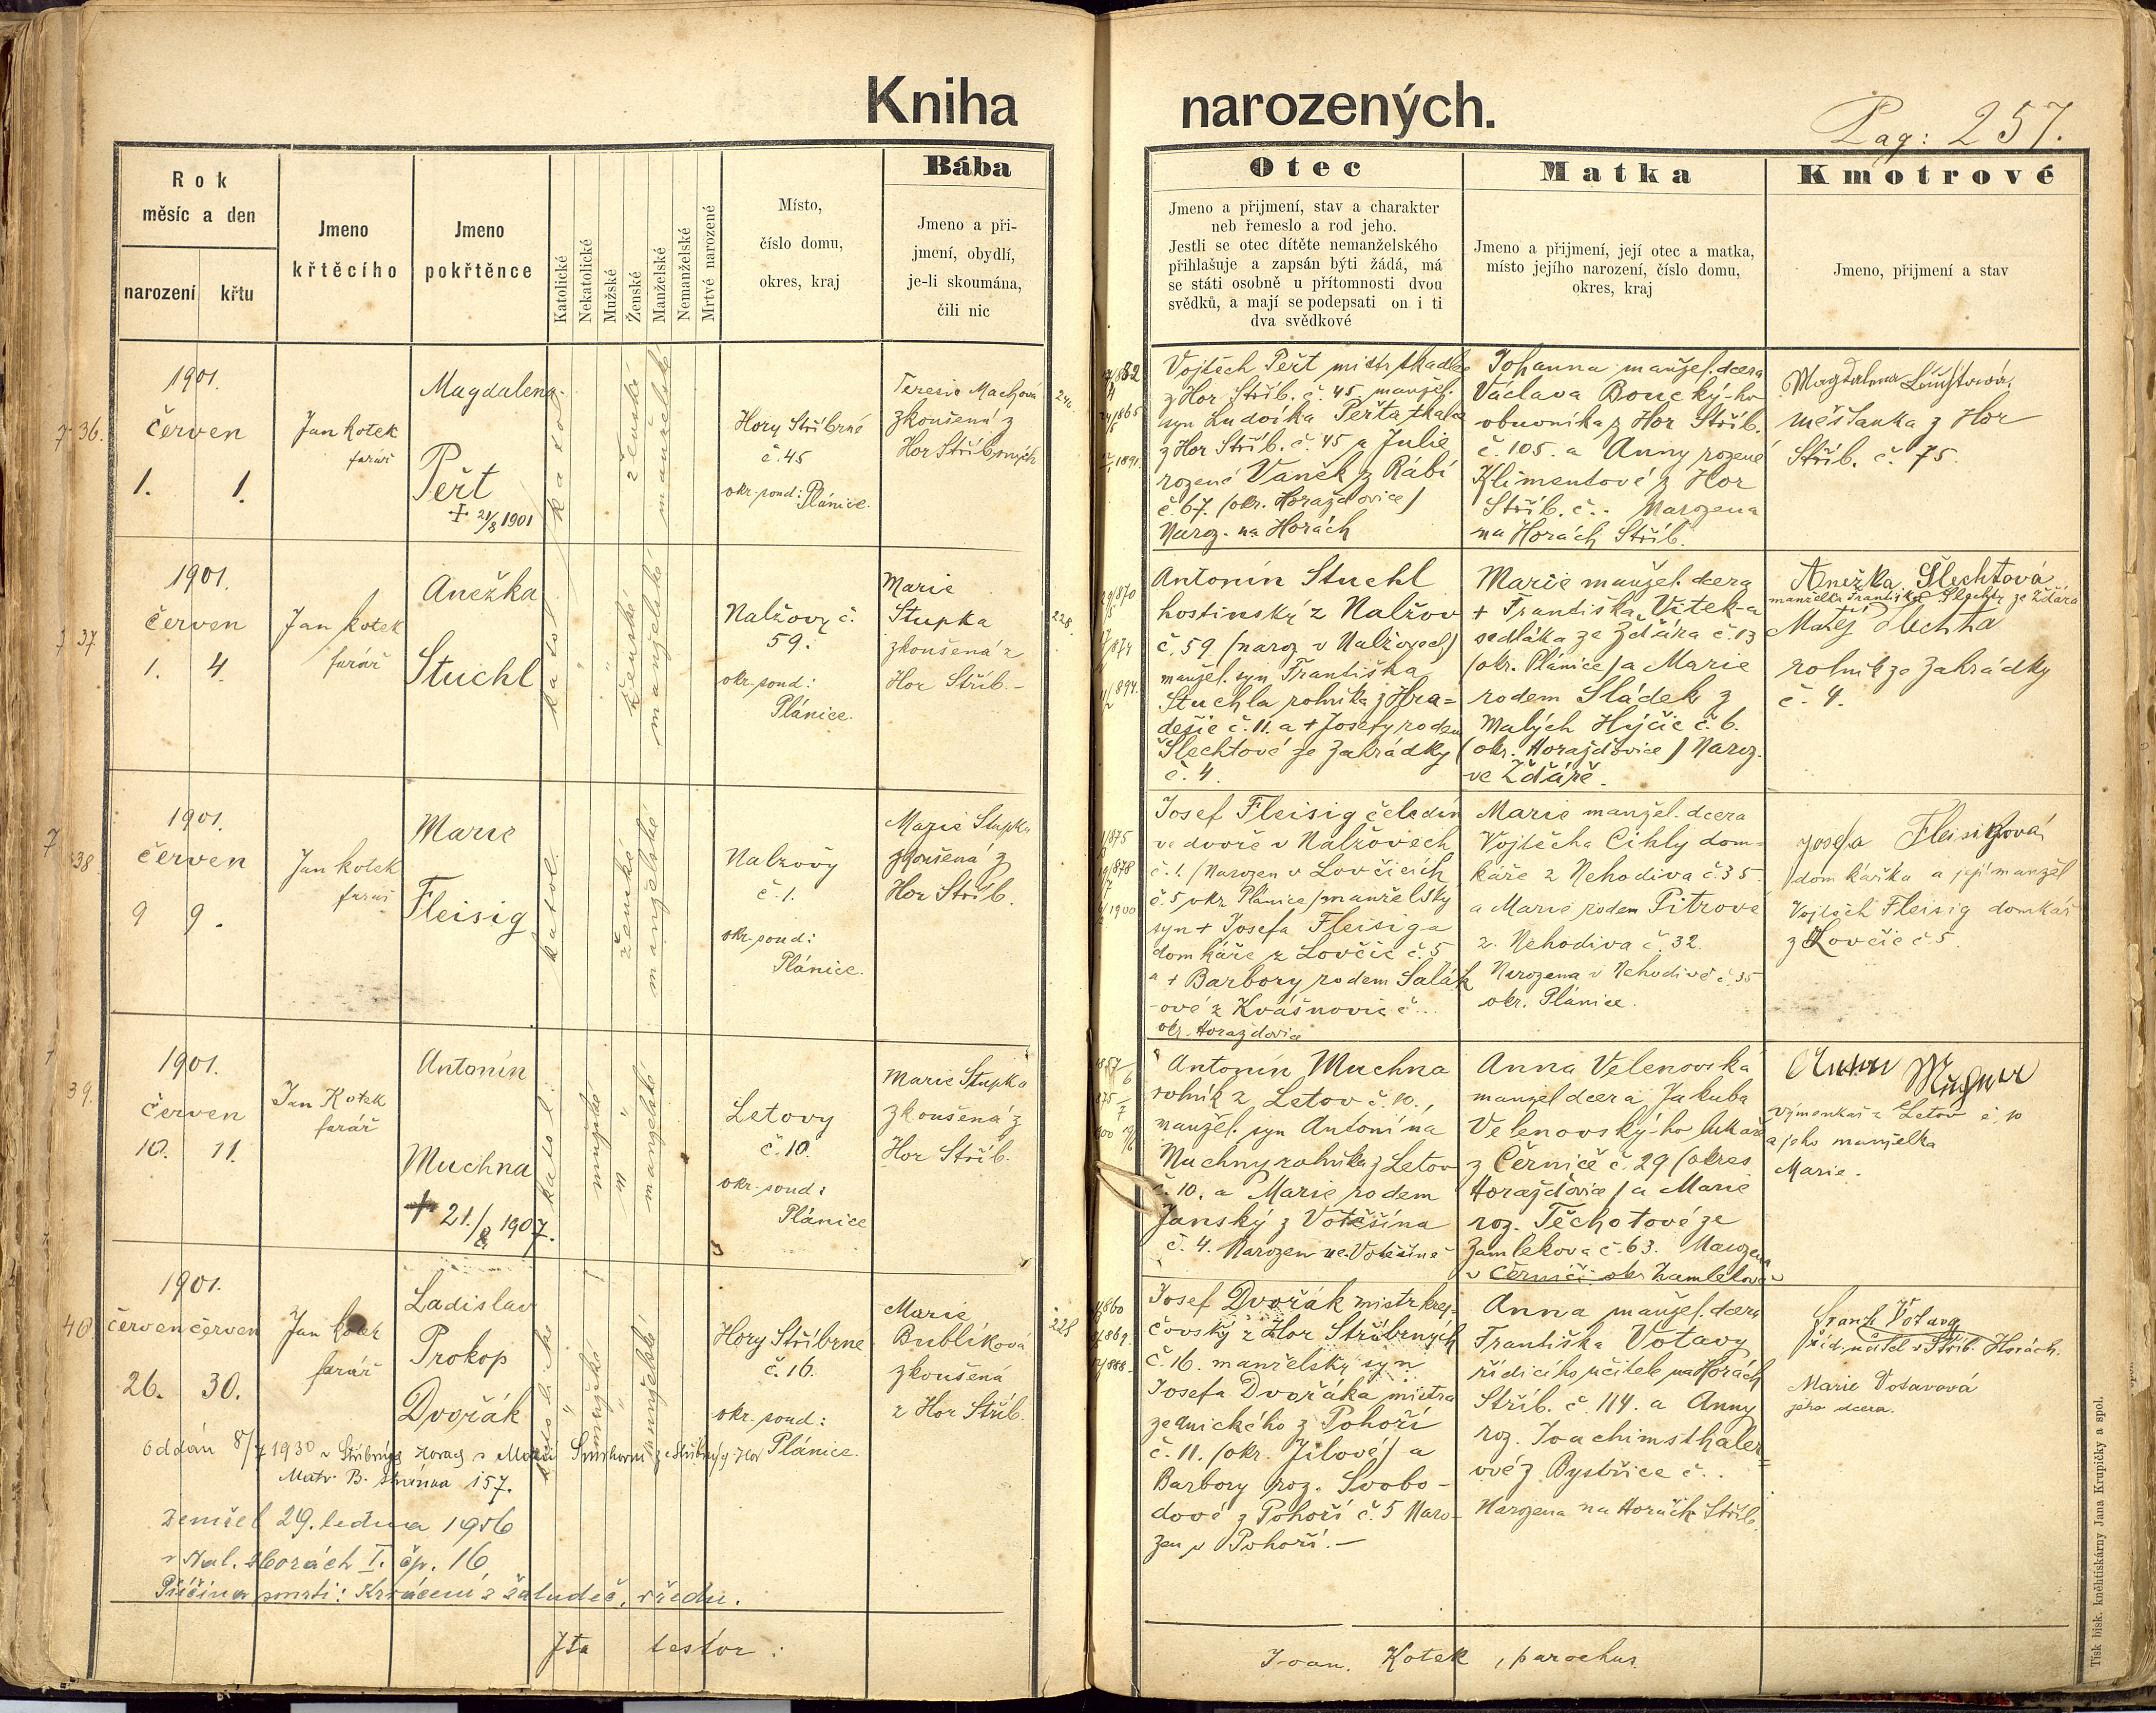 Kniha narozených.
Pag: 257.
Rok
měsíc a den
narození
křtu
Jmeno
křtěcího
Jmeno
pokřtěnce
Katolické
Nekatolické
Mužské
Ženské
Manželské
Nemanželské
Mrtvé narozené
Místo,
číslo domu,
okres, kraj
Bába
Jmeno a při-
jmení, obydlí,
je-li skoumána,
čili nic
Otec
Jmeno a přijmení, stav a charakter
neb řemeslo a rod jeho.
Jestli se otec dítěte nemanželského
přihlašuje a zapsán býti žádá, má
se státi osobně u přítomnosti dvou
svědků, a mají se podepsati on i ti
dva svědkové
Matka
Jmeno a přijmení, její otec a matka,
místo jejího narození, číslo domu,
okres, kraj
Kmotrové
Jmeno, přijmení a stav
36.
1901.
červen
1. 1.
Jan Kotek
farář
Magdalena
Peřt
+ 21/8 1901
katol.
ženské
manželské
Hory Stříbrné
č. 45
okr. soud: Plánice.
Teresie Machová
zkoušená z
Hor Stříbrných
Vojtěch Peřt mistr tkadlc.
z Hor Stříb. č. 45 manžel.
syn Ludvíka Peřta tkalce
z Hor Stříb. č. 45 a Julie
rozené Vaněk z Rábí
č. 67. (okr. Horažďovice)
Naroz. na Horách
Johanna manžel. dcera
Václava Boucký-ho
obuvníka z Hor Stříb.
č. 105. a Anny rozené
Klimentové z Hor
Stříb. č.. Narozena
na Horách Stříb.
Magdalena
měšťanka z Hor
Stříb. č. 75.
37.
1901.
červen
1. 4.
Jan Kotek
farář
Anežka
Stuchl
katol.
ženské
manželské
Nalžovy č.
59.
okr. soud:
Plánice.
Marie
Stupka
zkoušená z
Hor Stříb.-
228.
Antonín Stuchl
hostinský z Nalžov
č. 59 (naroz v Nalžovech)
manžel. syn Františka
Stuchla rolníka z Hra-
dešic č. 11. a + Josefy rodem
Šlechtové ze Zahrádky
č. 4.
Marie manžel. dcera
+ Františka Vítek-a
sedláka ze Žďáru č. 13
(okr. Plánice) a Marie
rodem Sládek z
Malých Hýčic č. 6.
(okr. Horažďovice) Naroz.
ve Žďáře.
Anežka Šlechtová
manželka Františka Šlechty ze Žďáru
Matěj Šlechta
rolník ze Zahrádky
č. 4.
38
1901.
červen
9 9.
Jan Kotek
farář
Marie
Fleisig
katol.
ženské
manželské
Nalžovy
č. 1.
okr. soud:
Plánice.
Marie Stupka
zkoušená z
Hor Stříb.
Josef Fleisig čeledín
ve dvoře v Nalžovech
č. 1. (Narozen v Lovčicích
č. 5 okr. Plánice) manželský
syn + Josefa Fleisiga
domkáře z Lovčic č. 5
a + Barbory rodem Salák
-ové z Kvášňovic č...
okr. Horažďovice
Marie manžel. dcera
Vojtěcha Cihly dom-
káře z Nehodiva č. 35.
a Marie rodem Pitrove
z. Nehodiva č. 32.
Narozena v Nehodivě č. 35
okr. Plánice.
Josefa Fleisigová
domkářka a její manžel
Vojtěch Fleisig domkář
z Lovčic č 5.
39.
1901.
červen
10. 11.
Jan Kotek
farář
Antonín
Muchna
+ 21./8. 1907.
katol.
mužské
manželské
Letovy
č. 10.
okr. soud:
Plánice
Marie Stupka
zkoušená z
Hor Stříb.
Antonín Muchna
rolník z Letov č. 10.,
manžel. syn Antonína
Muchny rolníka z Letov
č. 10. a Marie rodem
Janský z Votěšína
č. 4. Narozen ve Votěšíně
Anna Velenovská
manžel dcera Jakuba
Velenovský-ho lukaře
z Černíče č. 29 (okres
Horažďovice) a Marie
roz. Těchotové ze
Zamlekova č. 63. Narozena
v Černíči okr Zamleková
výmenkář z Letov č. 10
a jeho manželka
Marie.
40
1901.
červen červen
26. 30.
Jan Kotek
farář
Ladislav
Prokop
Dvořák
katolické
mužské
manželské
Hory Stříbrné
č. 16.
okr. soud:
Plánice.
Marie
Bublíková
zkoušená
z Hor Stříb.
228
Josef Dvořák mistr krej-
čovský z Hor Stříbrných
č. 16. manželský syn
Josefa Dvořáka mistra
zednického z Pohoří
č. 11. (okr. Jílové) a
Barbory roz. Svobo-
dové z Pohoří č. 5 Naro-
zen v Pohoří.-
Anna manžel. dcera
Františka Votavy
řídícího učitele na Horách
Stříb. č. 114. a Anny
roz. Joachimsthaler-
ové z Bystřice č..
Narozena na Horách Stříb.
Frant Votava
říd. učitel v Stříb. Horách.
Marie Votavová
jeho dcera.
Oddán 8/7 1930 v Stříbrných Horách s Marií z Stříbrných Hor
Matr. B. stránka 157.
Zemřel 29. ledna 1956
v Nal. Horách I. čp. 16
Příčina smrti: Krvácení z žaludeč. vředu.
Ita testor:
Joan. Kotek, parochus.
Tisk bisk. kněhtiskárny Jana Krupičky a spol.